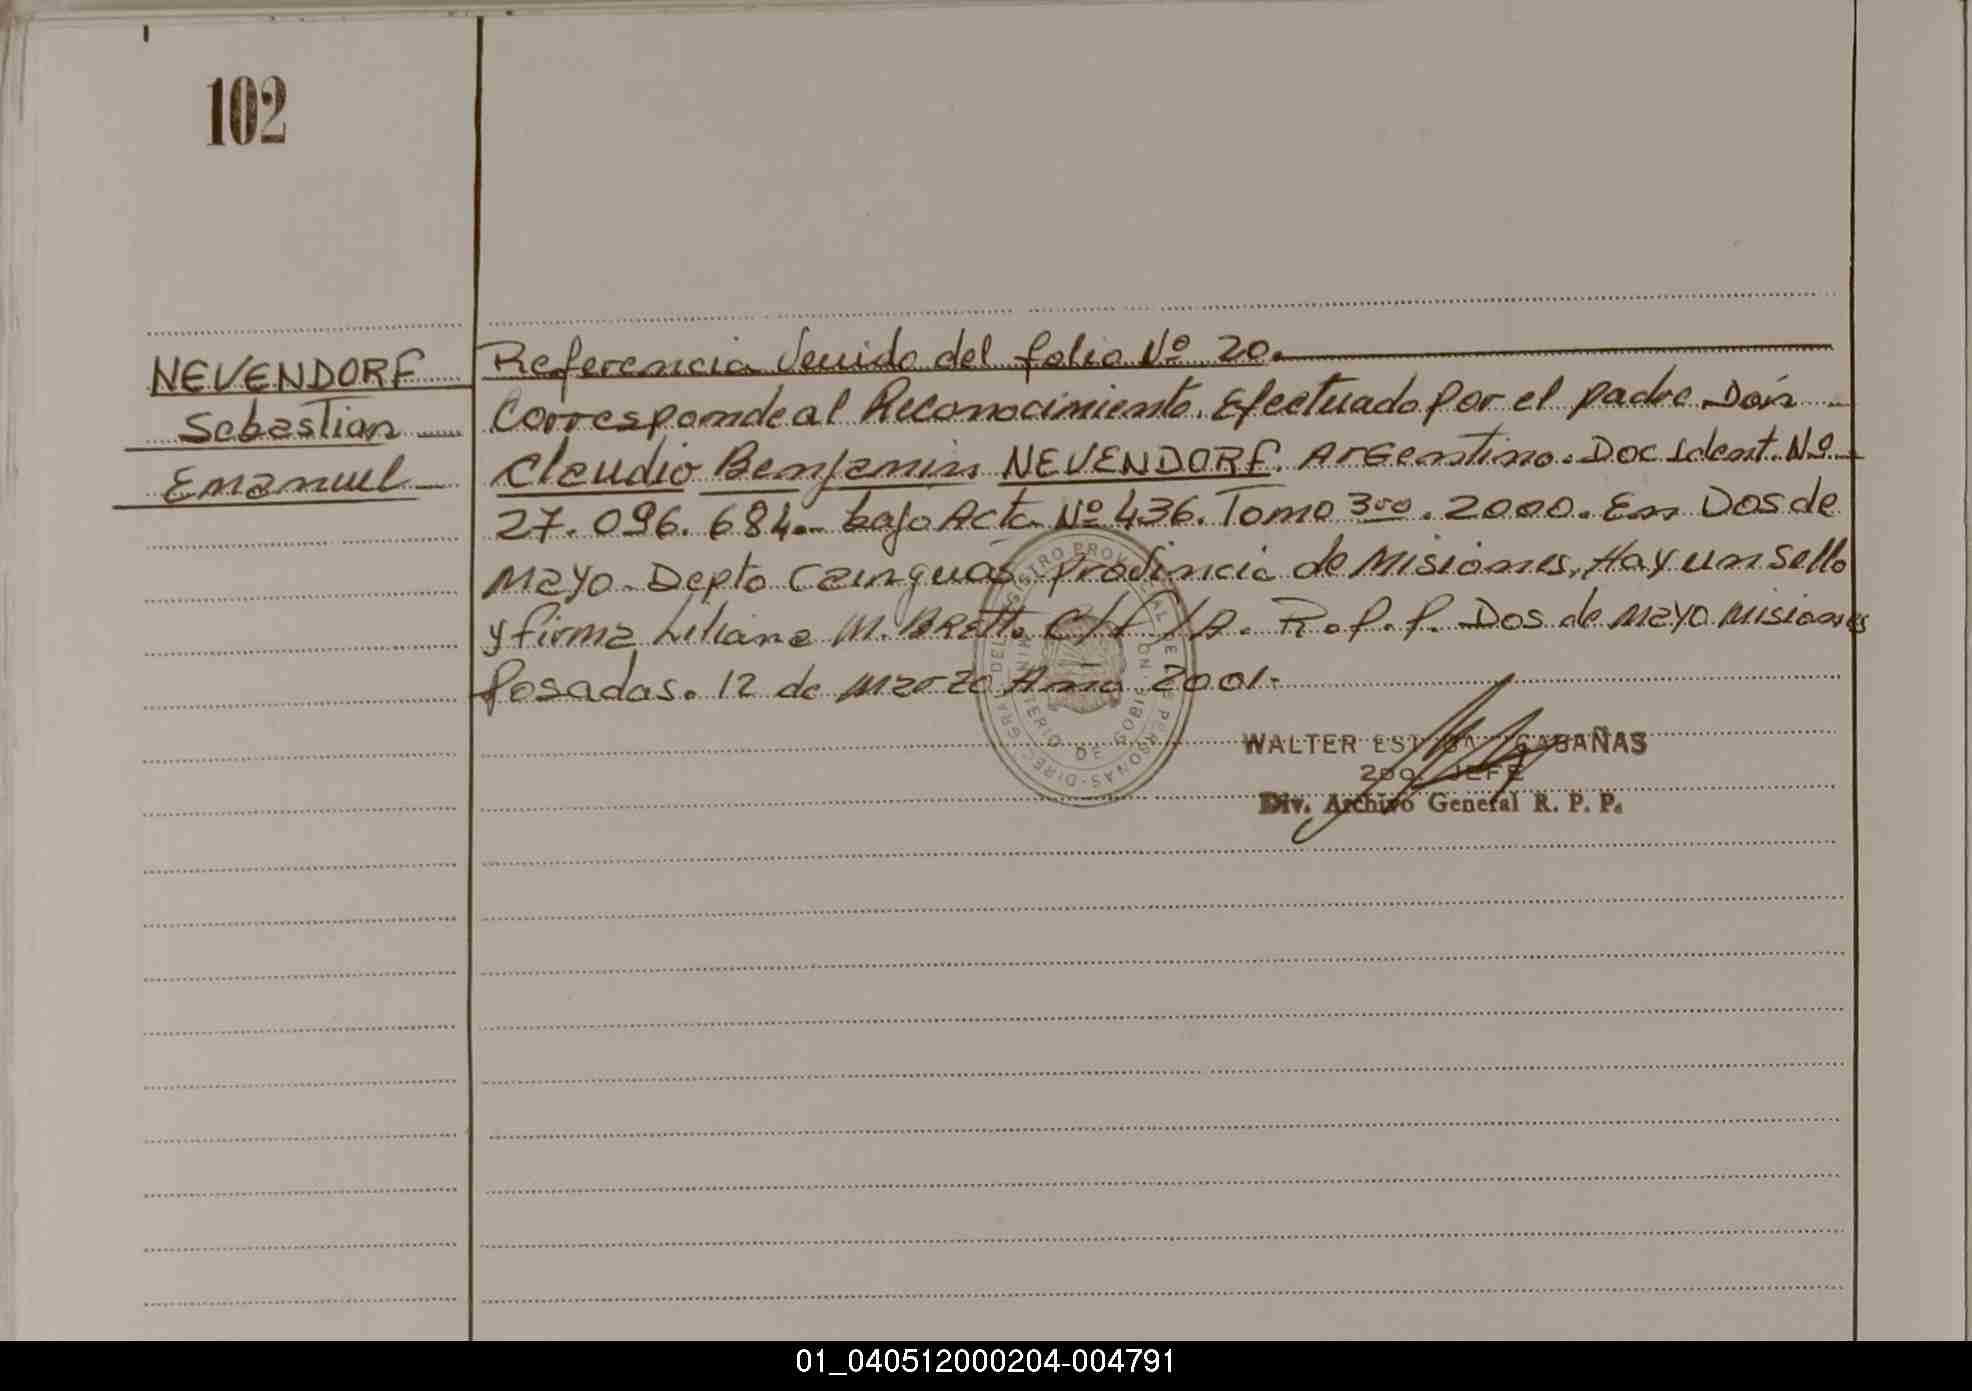 102
NEVENDORF
Sebastian
Emanuel
Referencia Venido del folio Nº 20.
Corresponde al Reconocimiento. Efectuado por el padre Don
Claudio Benjamin NEVENDORF. Argentino. Doc Ident. Nº
27.096.684. bajo Acta Nº 436. Tomo 3ro. 2000. En Dos de
Mayo. Depto Cainguas Provincia de Misiones, Hay un sello
y firma Liliana M. Bretto C/f/A. R.P.P. Dos de Mayo Misiones
Posadas. 12 de Marzo Año 2001.
WALTER CABAÑAS
2DO. JEFE
Div. Archivo General R. P. P.
01_040512000204-004791